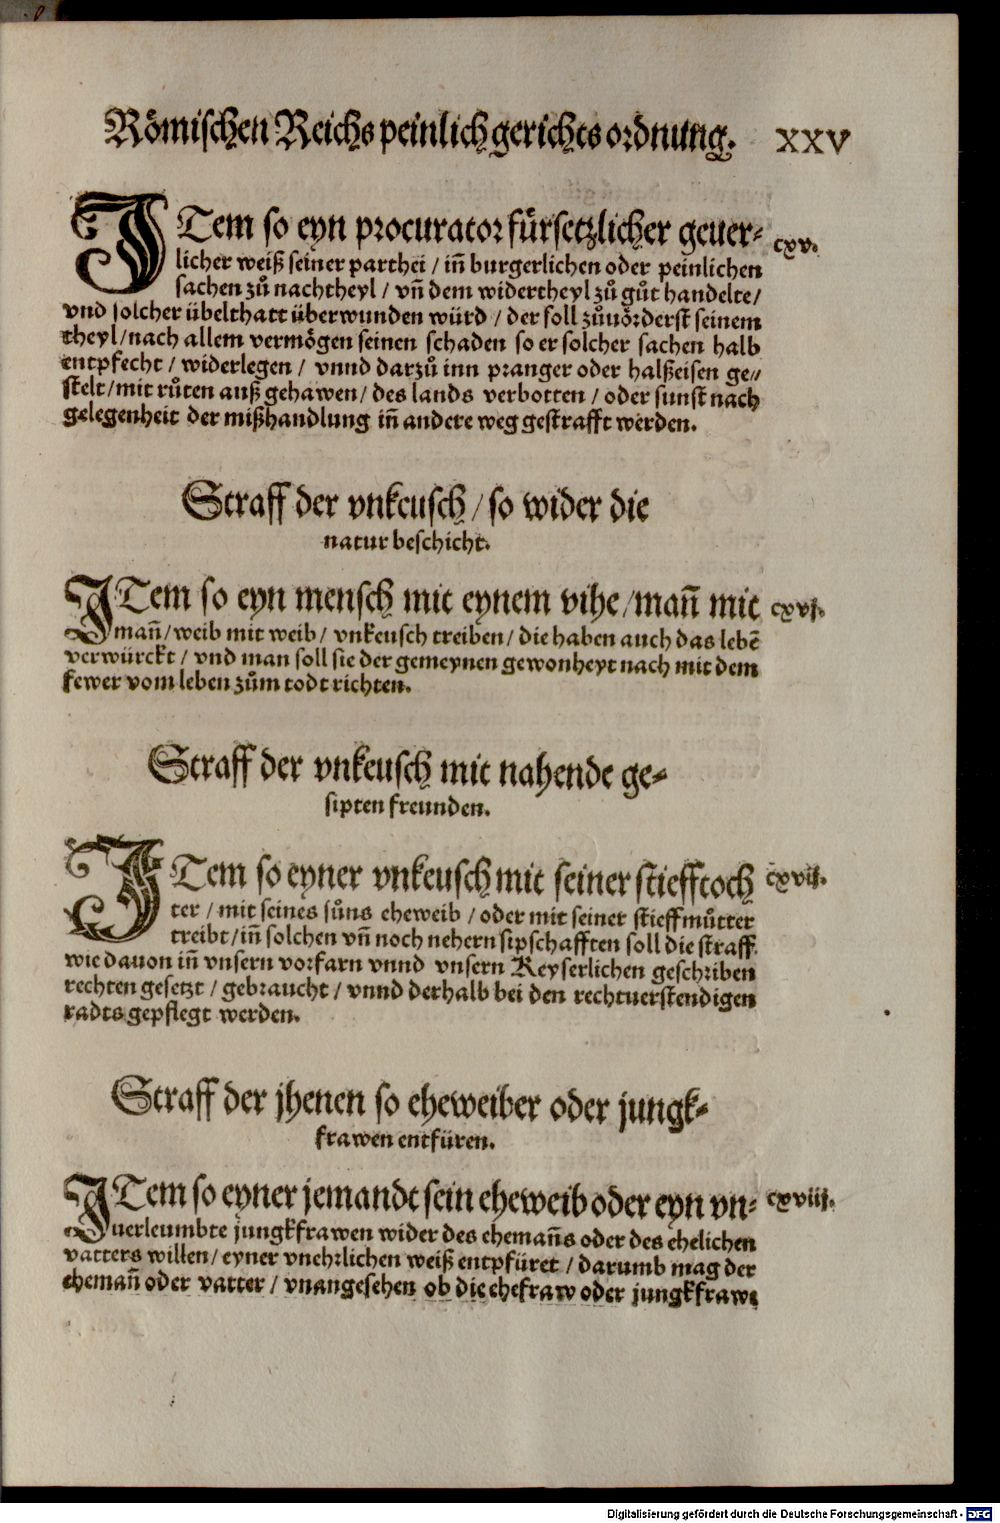 Römischen Reichs peinlich gerichts ordnung. XXV
ITem so eyn procurator fürsetzlicher geuer⸗ cxv.
licher weiß seiner parthei / iñ burgerlichen oder peinlichen
sachen zů nachtheyl / vñ dem widertheyl zů gůt handelte /
vnd solcher übelthatt überwunden würd / der soll zůuörderst seinem
theyl / nach allem vermögen seinen schaden so er solcher sachen halb
entpfecht / widerlegen / vnnd darzů inn pranger oder halßeisen ge⸗
stelt / mit růten auß gehawen / des lands verbotten / oder sunst nach
gelegenheit der mißhandlung iñ andere weg gestrafft werden.
Straff der vnkeusch / so wider die
natur beschicht.
ITem so eyn mensch mit eynem vihe / mañ mit cxvj.
mañ / weib mit weib / vnkeusch treiben / die haben auch das lebē
verwürckt / vnd man soll sie der gemeynen gewonheyt nach mit dem
fewer vom leben zům todt richten.
Straff der vnkeusch mit nahende ge⸗
sipten freunden.
ITem so eyner vnkeusch mit seiner stiefftoch cxvij.
ter / mit seines sůns eheweib / oder mit seiner stieffmůtter
treibt / iñ solchen vñ noch nehern sipschafften soll die straff
wie dauon iñ vnsern vorfarn vnnd vnsern Keyserlichen geschriben
rechten gesetzt / gebraucht / vnnd derhalb bei den rechtuerstendigen
radts gepflegt werden.
Straff der jhenen so eheweiber oder jungk⸗
frawen entfüren.
ITem so eyner jemandt sein eheweib oder eyn vn⸗ cxviij.
uerleumbte jungkfrawen wider des ehemañs oder des ehelichen
vatters willen / eyner vnehrlichen weiß entpfüret / darumb mag der
ehemañ oder vatter / vnangesehen ob die ehefraw oder jungkfraw
Digitalisierung gefördert durch die Deutsche Forschungsgemeinschaft - DFG